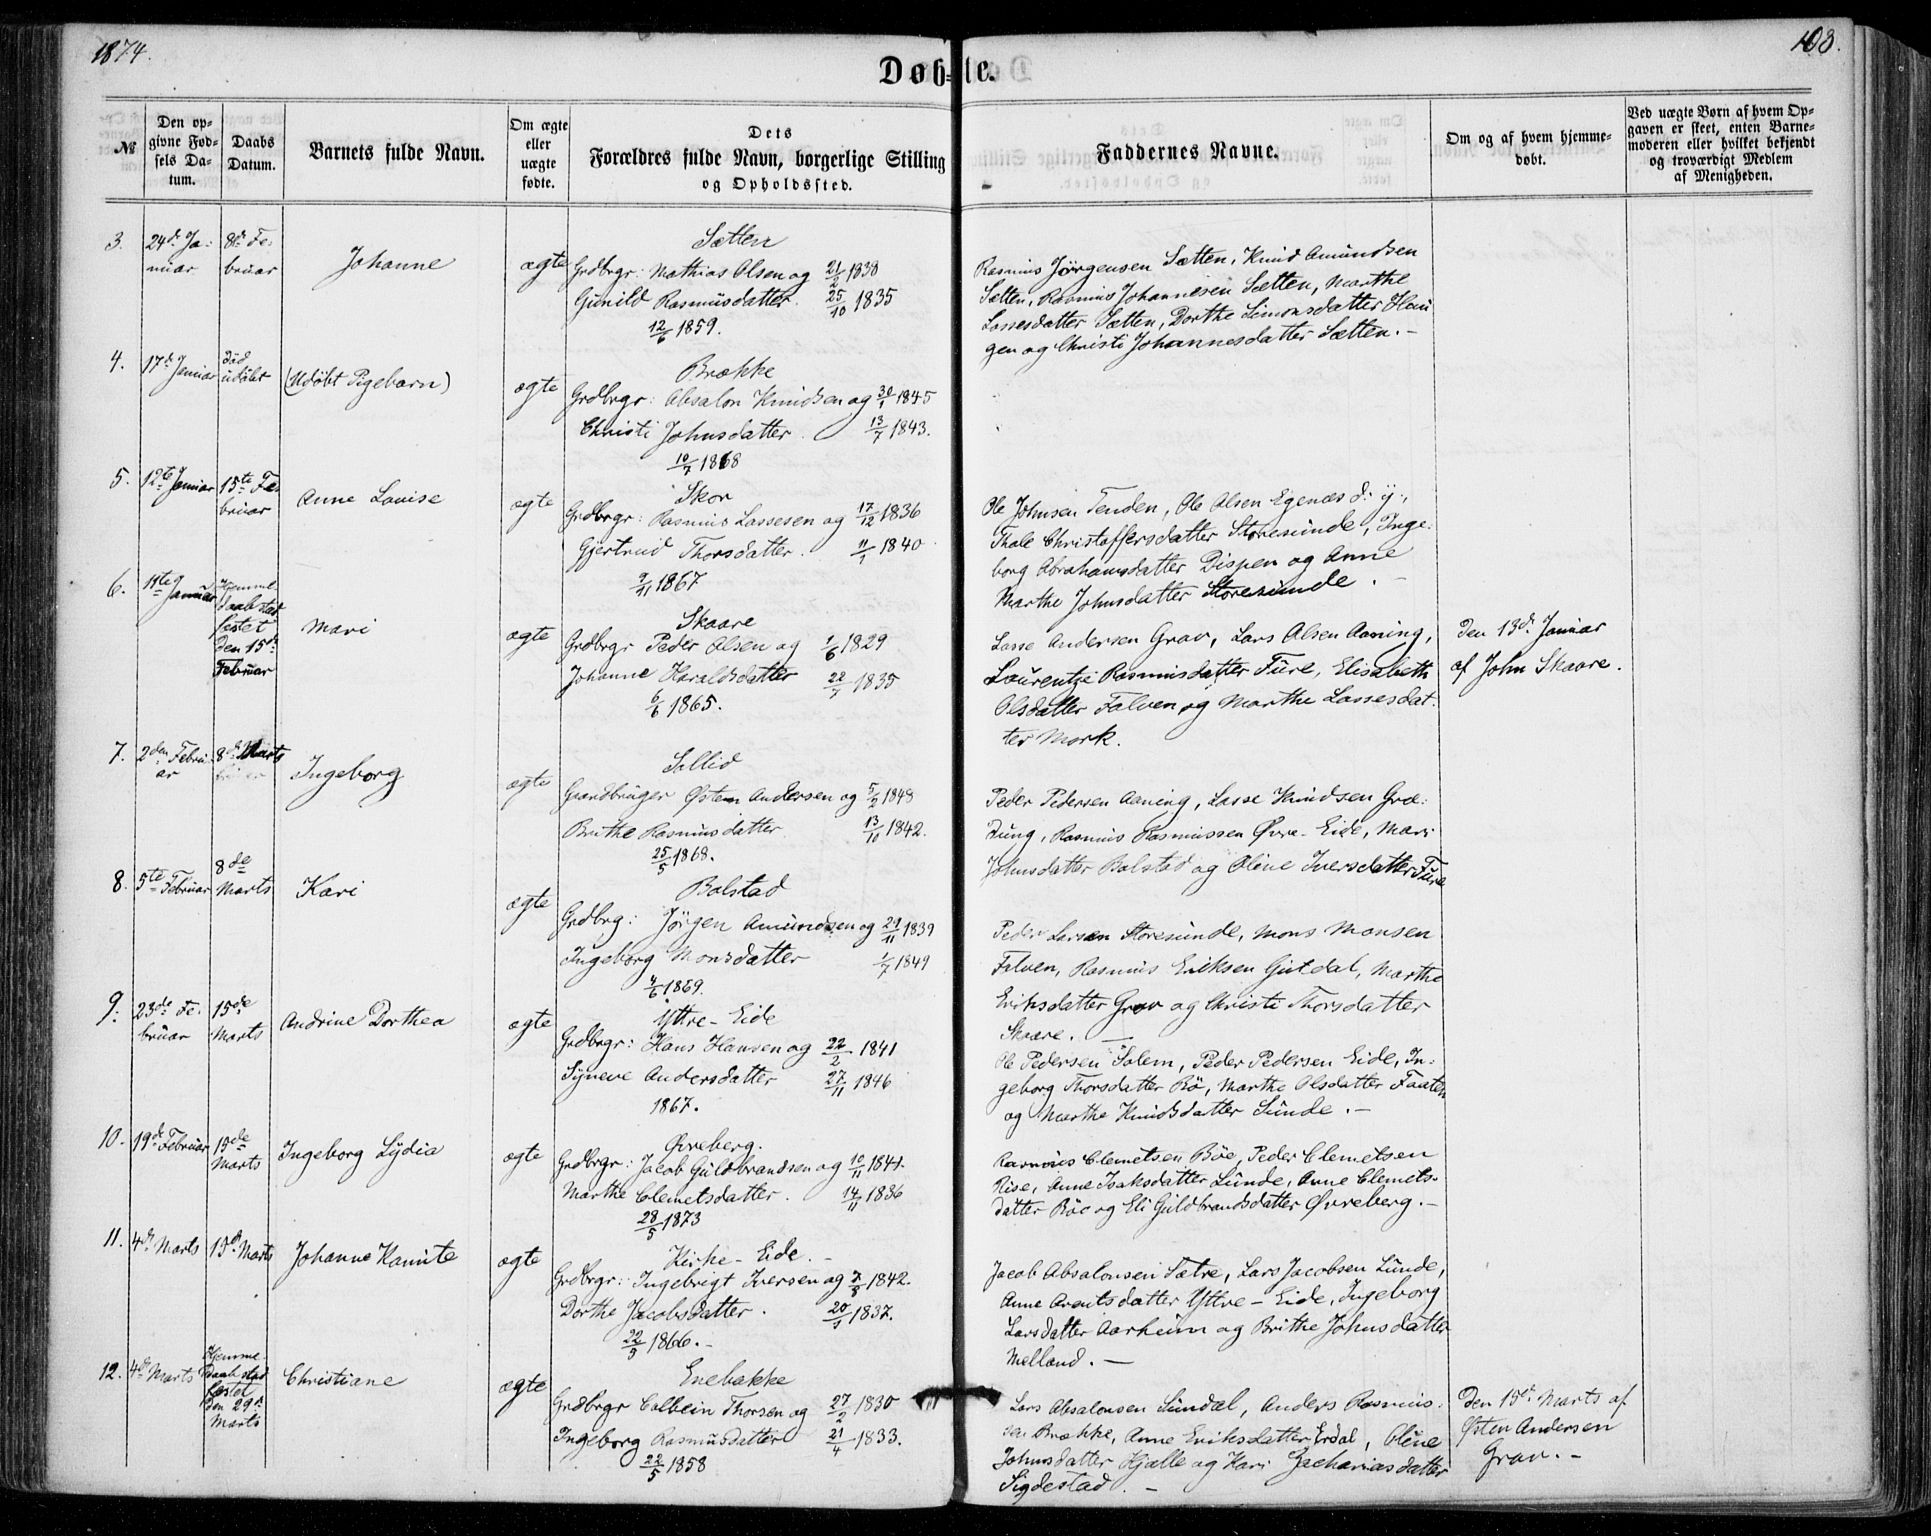 1874.
103.
Døbte.
№
Den opgivne Fødsels Datum.
Daabs Datum.
Barnets fulde Navn.
Om ægte eller uægte fødte.
Dets Forældres fulde Navn, borgerlige Stilling og Opholdssted.
Faddernes Navne.
Om og af hvem hjemmedøbt.
Ved uægte Børn af hvem Opgaven er skeet, enten Barnemoderen eller hvilket bekjendt og troværdigt Medlem af Menigheden.
3. 24de Januar 8de Februar Johanne ægte
Sætten
Grdbrgr: Mathias Olsen og 21/2 1838
Gunild Rasmusdatter. 25/10 1835
12/6 1859.
Rasmus Jørgensen Sætten, Knud Amundsen
Sætten, Rasmus Johannesen Sætten, Marthe
Lassesdatter Sætten, Dorthe Simonsdatter Hau
gen og Christi Johannesdatter Sætten.-
4. 17de Januar død udøbt (Udøbt Pigebarn) ægte
Brække
Grdbrgr: Absalon Knudsen og 30/1 1845
Christi Johnsdatter. 13/7 1843.
10/7 1868
5. 12te Januar 15te Februar Anne Louise ægte
Skor
Grdbrgr: Rasmus Lassesen og 17/12 1836
Gjertrud Thorsdatter. 11/1 1840
9/11 1867
Ole Johnsen Tenden, Ole Olsen Egenæs d: y.,
Thale Christoffersdatter Storesunde, Inge-
borg Abrahamsdatter Dispen og Anne
Marthe Johnsdatter Storesunde.-
6. 11te Januar Hjemmedaab stadfæstet den 15de Februar Mari ægte
Skaare
Grdbrgr Peder Olsen og 1/6 1829
Johanne Haraldsdatter 22/7 1835
6/6 1865.
Lasse Andersen Grav, Lars Olsen Aaning,
Laurentze Rasmusdatter Fure, Elisabeth
Olsdatter Falven og Marthe Lassesdat-
ter Mork.
Den 13de Januar
af John Skaare.
7. 2den Februar 8de Marts Ingeborg ægte
Sollid
Grændbruger Østen Andersen og 5/2 1848
Brithe Rasmusdatter 13/10 1842.
25/5 1868.
Peder Pedersen Aaning, Lasse Knudsen Græ-
dung, Rasmus Rasmussen Øvre-Eide, Mari
Johnsdatter Bolstad og Oline Iversdatter Fure
8. 5te Februar 8de Marts Kari ægte
Bolstad
Grdbrg: Jørgen Amundsen og 29/11 1839
Ingeborg Monsdatter 1/7 1849
4/6 1869.
Peder Larsen Storesunde, Mons Monsen
Falven, Rasmus Eriksen Gutdal, Marthe
Eriksdatter Grov og Christi Thorsdatter
Skaare.
9. 23de Februar 15de Marts Andrine Dorthea ægte
Yttre-Eide
Grdbrgr: Hans Hansen og 22/2 1841
Syneve Andersdatter 27/11 1846
1867.
Ole Pedersen Solem, Peder Pedersen Eide, In-
geborg Thorsdatter Bø, Marthe Olsdatter Faaten
og Marthe Knudsdatter Sunde.-
10. 19de Februar 15de Marts Ingeborg Lydia ægte
Øvreberg.
Grdbrgr: Jacob Guldbrandsen og 10/11 1841.
Marthe Clemetsdatter. 14/11 1836
28/5 1873
Rasmus Clemetsen Böe, Peder Clemetsen
Rise, Anne Isaksdatter Lunde, Anne Clemets-
datter Böe og Eli Guldbrandsdatter Øvreberg.-
11. 4de Marts 15de Marts Johanne Kamite ægte
Kirke-Eide.-
Grdbrgr: Ingebrigt Iversen og 7/5 1842.
Dorthe Jacobsdatter. 20/1 1837.
22/5 1866.-
Jacob Absalonsen Sætre, Lars Jacobsen Lunde,
Anne Arentsdatter Yttre-Eide, Ingeborg
Larsdatter Aarheim og Brithe Johnsdatter
Melland.-
12. 4de Marts Hjemmedaab stadfæstet den 29de Marts Christiane ægte
Enebakke
Grdbrgr Colbein Thorsen og 27/2 1830
Ingeborg Rasmusdatter 21/4 1833.
22/5 1858
Lars Absalonsen Sundal, Anders Rasmus-
sen Brække, Anne Eriksdatter Erdal, Oline
Johnsdatter Hjelle og Kari Zachariasdatter
Sigdestad.-
Den 15de Marts af
Østen Andersen
Grav.-